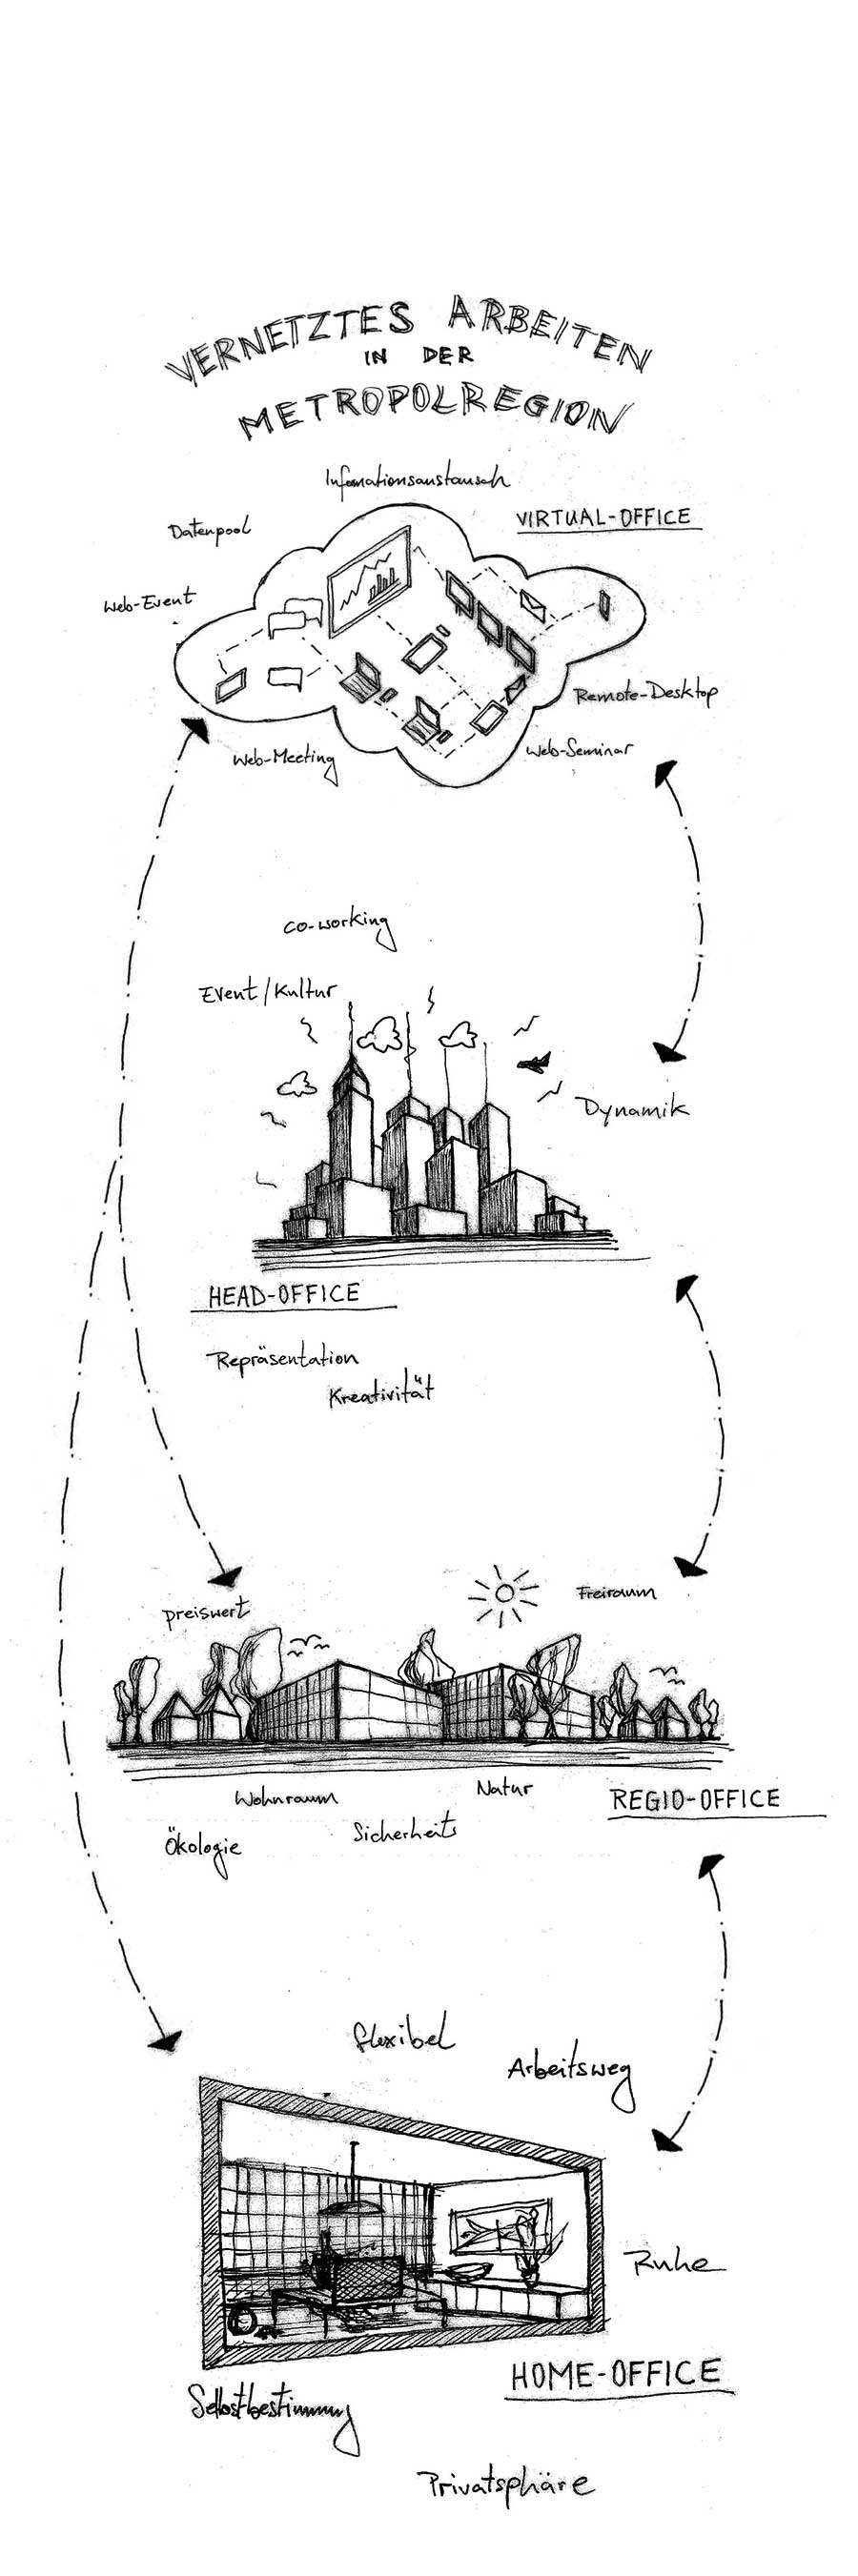 VERNETZTES ARBEITEN
IN DER
METROPOLREGION
Infomationsaustausch
VIRTUAL-OFFICE
Datenpool
Web-Event
Remote-Desktop
Web-Meeting
Web-Seminar
co-working
Event/Kultur
Dynamik
HEAD-OFFICE
Repräsentation
Kreativität
Freiraum
preiswert
Wohnraum
Natur
REGIO-OFFICE
Ökologie
Sicherheits
flexibel
Arbeitsweg
Ruhe
HOME-OFFICE
Selbstbestimmung
Privatsphäre